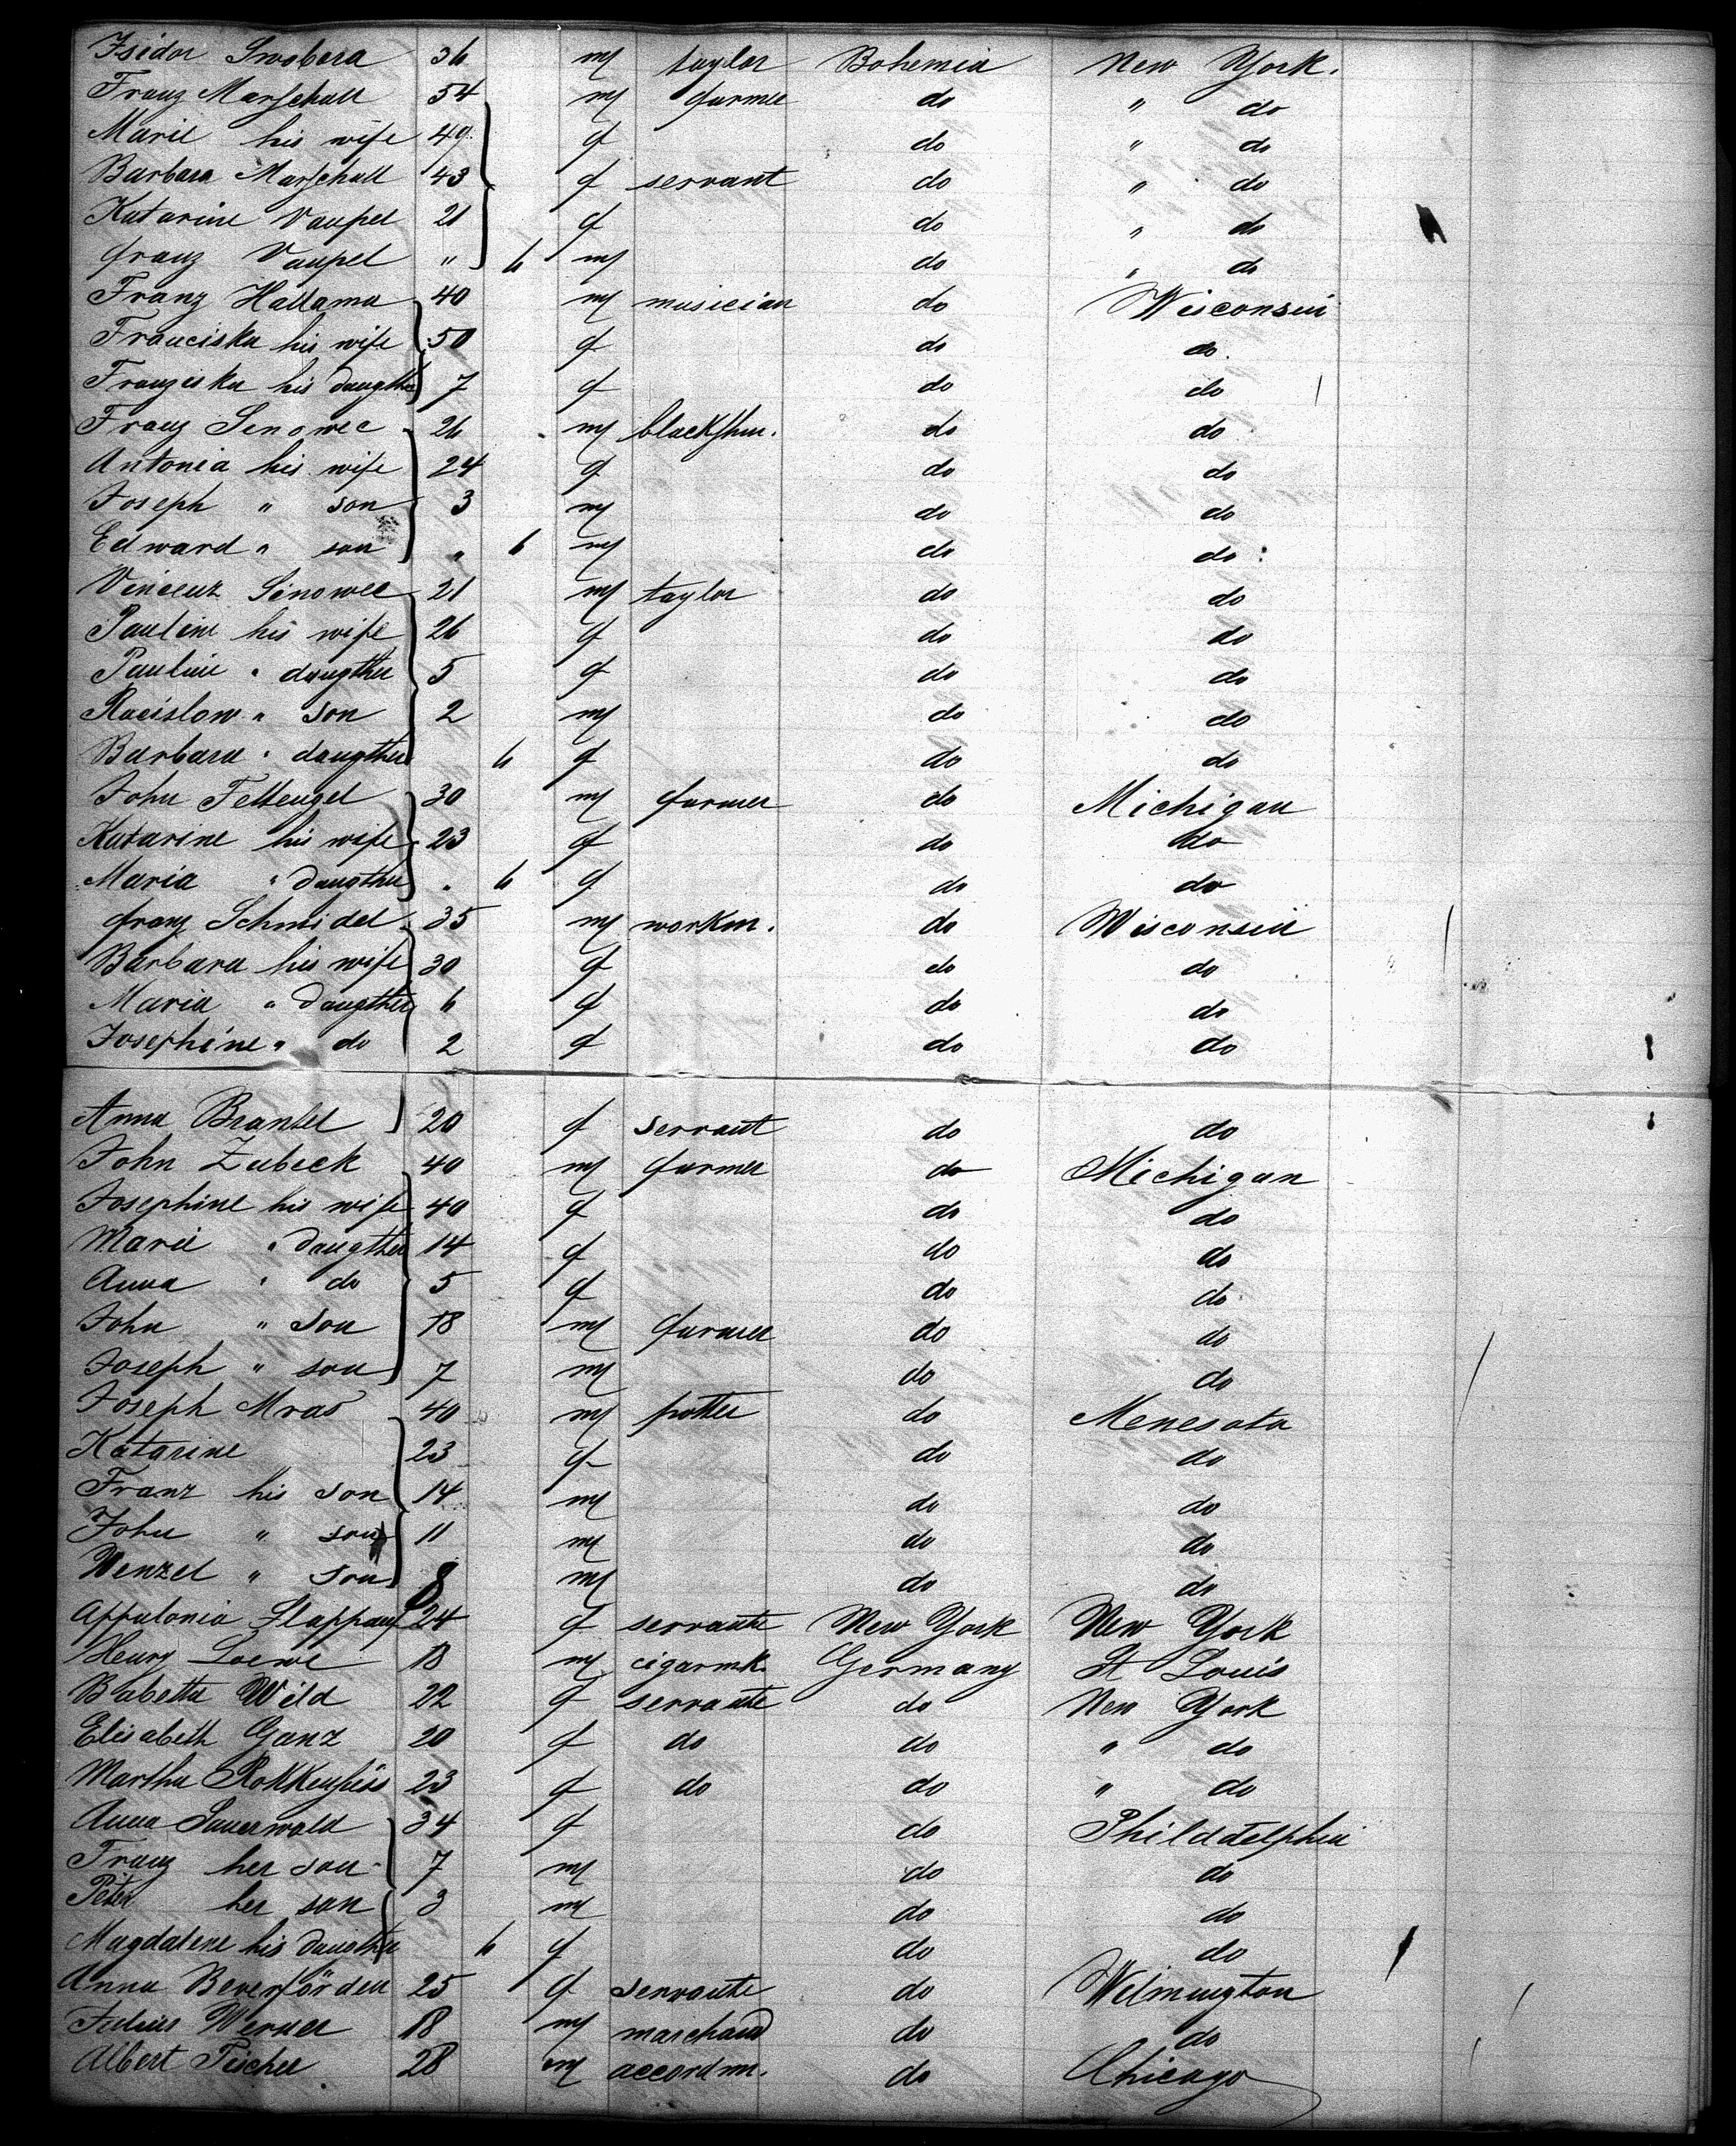 Isidor Swobera 36 m taylor Bohemia New York.
Franz Marschall 54 m farmer do " do
Marie his wife 49 f do " do
Barbara Marschall 43 f servant do " do
Katarine Vaupel 21 f do " do
franz Vaupel " 6 m do " do
Franz Hallama 40 m musician do Wisconsin
Franciska his wife 50 f do do
Franziska his daugther 7 f do do
Franz Senowec 26 m blacksm. do do
Antonia his wife 24 f do do
Joseph " son 3 m do do
Edward " son " 6 m do do
Vincenz Sinowec 21 m taylor do do
Pauline his wife 26 f do do
Pauline " daugther 5 f do do
Racislow " son 2 m do do
Barbara " daugther 6 f do do
John Feltengel 30 m farmer do Michigan
Katarine his wife 23 f do do
Maria " daugther " 6 f do do
franz Schmidel 35 m workm. do Wisconsin
Barbara his wife 30 f do do
Maria " daugther 6 f do do
Josephine " do 2 f do do
Anna Brantel 20 f servant do do
John Zubeck 40 m farmer do Michigan
Josephine his wife 40 f do do
Marie " daugther 14 f do do
Anna " do 5 f do do
John " son 18 m farmer do do
Joseph " son 7 m do do
Joseph Mras 40 m potter do Menesota
Katarine 23 f do do
Franz his son 14 m do do
John " son 11 m do do
Wenzel " son 8 m do do
Appolonia 24 f servante New York New York
Henry Loewe 18 m cigarmk. Germany St Louis
Babetta Wild 22 f servante do New York
Elisabeth Ganz 20 f do do " do
Martha 23 f do do " do
Anna Sauerwald 34 f do Philddelphia
Franz her son 7 m do do
Peter her son 3 m do do
Magdalene his daugther 6 f do do
Anna Beverförden 25 f servante do Welmington
Julius Werner 18 m marchand do do
Albert Fischer 28 m accordm. do Chicago